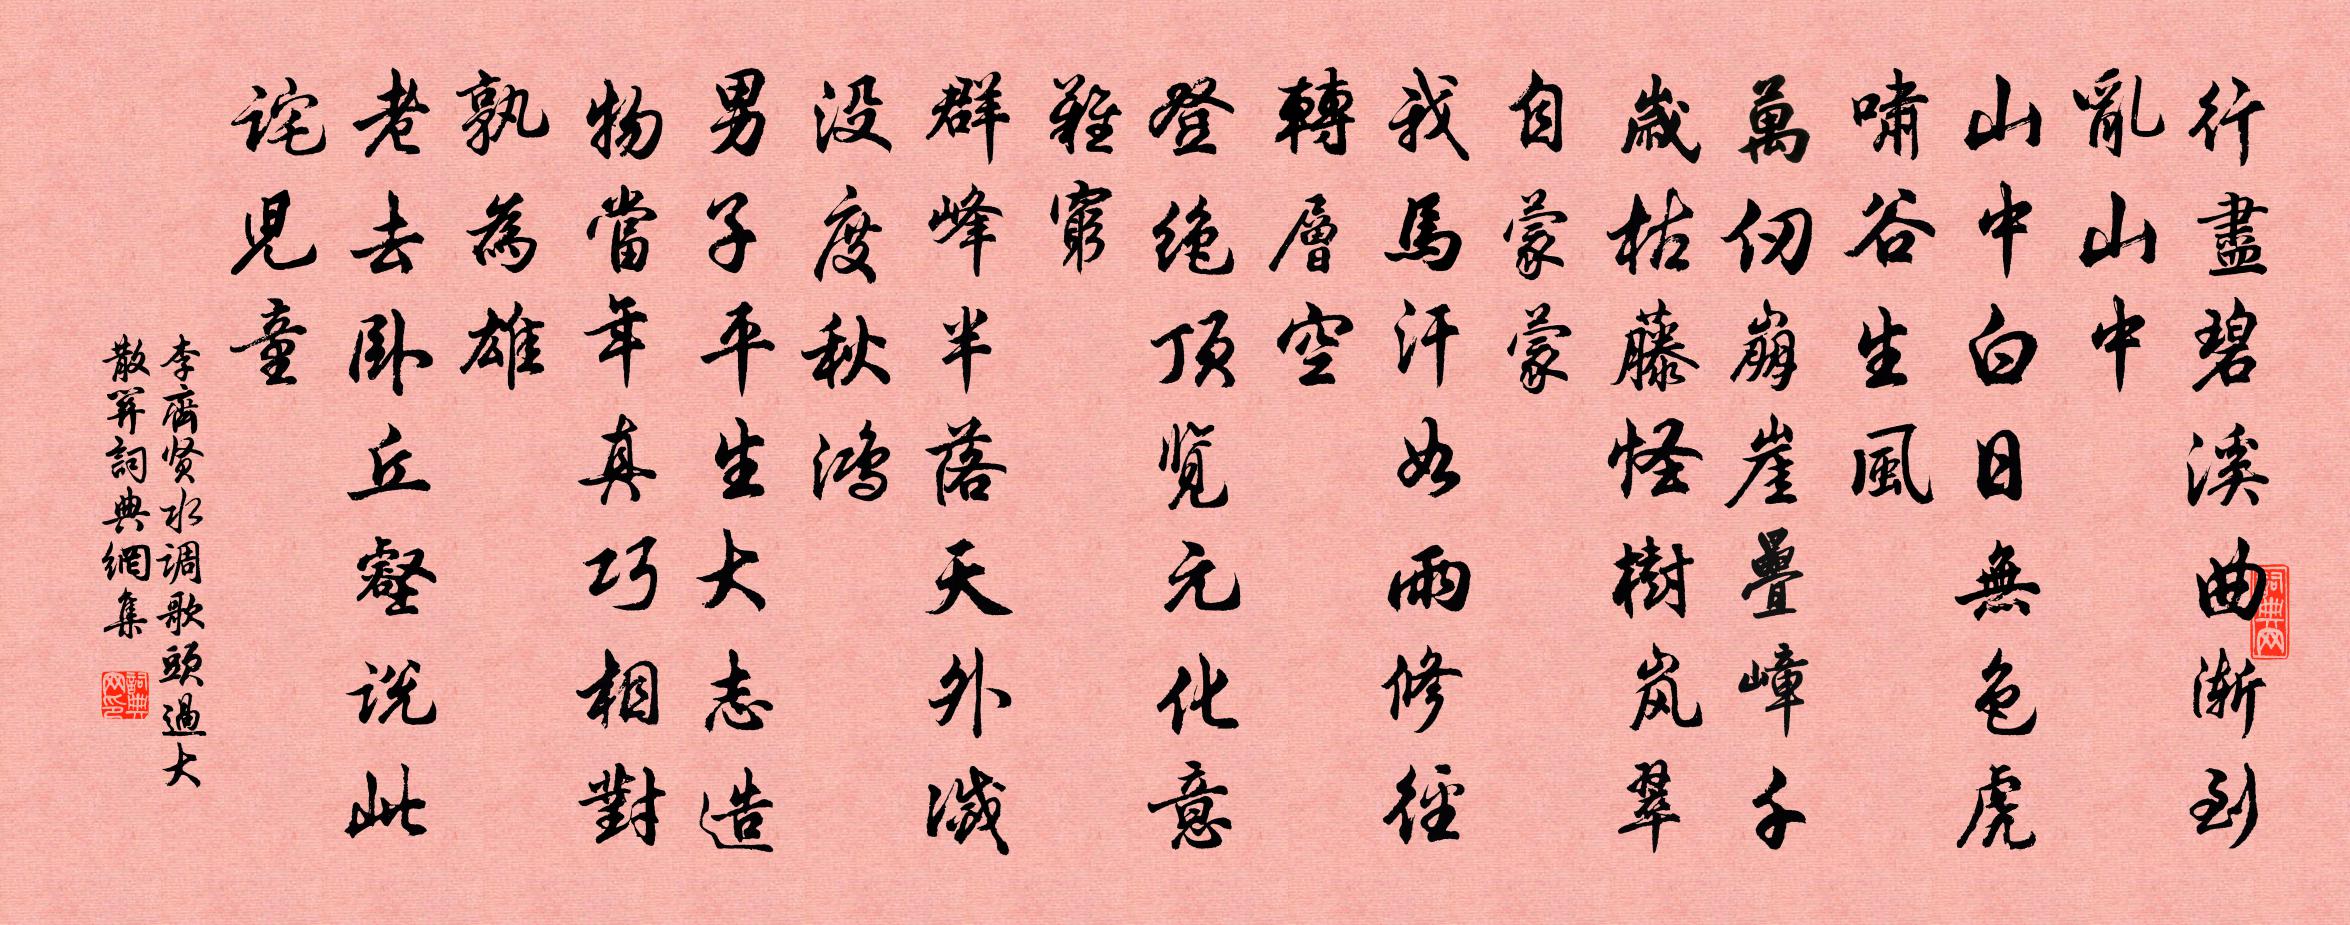 行盡碧溪曲漸到
亂山中
山中白日無色虎
嘯谷生風
萬仞崩崖疊嶂千
歲枯藤怪樹嵐翠
自蒙蒙
我馬汗如雨修徑
轉層空
登絕頂覽元化意
難窮
群峰半落天外滅
沒度秋鴻
男子平生大志造
物當年真巧相對
孰為雄
老去臥丘壑說此
詫兒童
李齊贤水调歌頭過大
散關詞典網集
詞典网
詞典网印